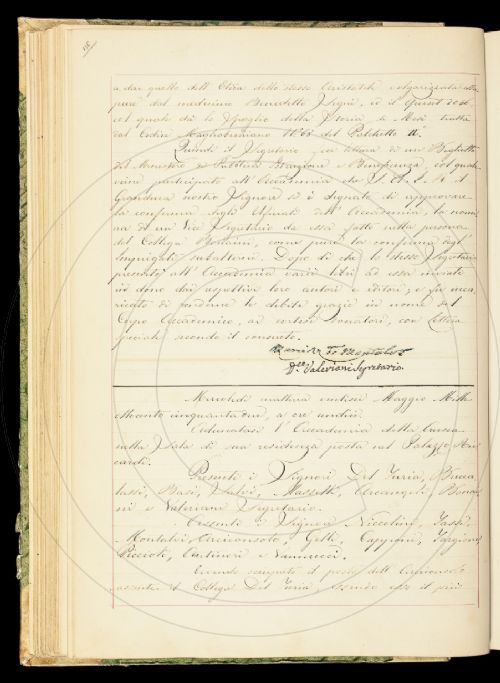 a dar quello dell'Etica dello stesso Aristotele volgarizzata
pure dal medesimo Benedetto
col quale dà lo Spoglio della Storia di Mesè tratta
dal Codice Magliabechiano N° 63 del Palchetto II°.
Quindi il Segretario fa lettura di un Biglietto
del Ministero di Pubblica Istruzione e Beneficenza, col quale
viene participato all'Accademia che S. A. I. e R. il
Granduca nostro Signore si è degnato di approvare
la conferma degli Ufiziali dell'Accademia, la nomi
na di un Vice Segretario da essa fatta nella persona
del Collega Bonaini, come pure la conferma degli
Impiegati subalterni. Dopo di che lo stesso Segretario
presentò all'Accademia varii libri ad essa inviati
in dono dai rispettivi loro autori e editori, e fu inca
ricato di renderne le debite grazie in nome del
Corpo Accademico, ai cortesi Donatori, con Lettera
speciale secondo il consueto.
Valeriani Segretario.
Mercoledì mattina ventisei Maggio Mille
ottocento cinquanta, a ore undici.
Adunatasi l'Accademia della Crusca
nella Sala di sua residenza posta nel Palazzo Ric
cardi.
Presenti i Signori Del Furia, Bruca
lassi, Basi, Salvi, Masselli, Arcangeli, Bonai
ni e Valeriani Segretario.
Assenti i Signori Niccolini, Tassi,
Montalvi Arciconsolo, Gelli, Capponi, Targioni,
Puccioti, Cantinori e Vannucci.
Essendo occupato il posto dell'Arciconsolo
assente il Collega Del Furia, essendo esso il più